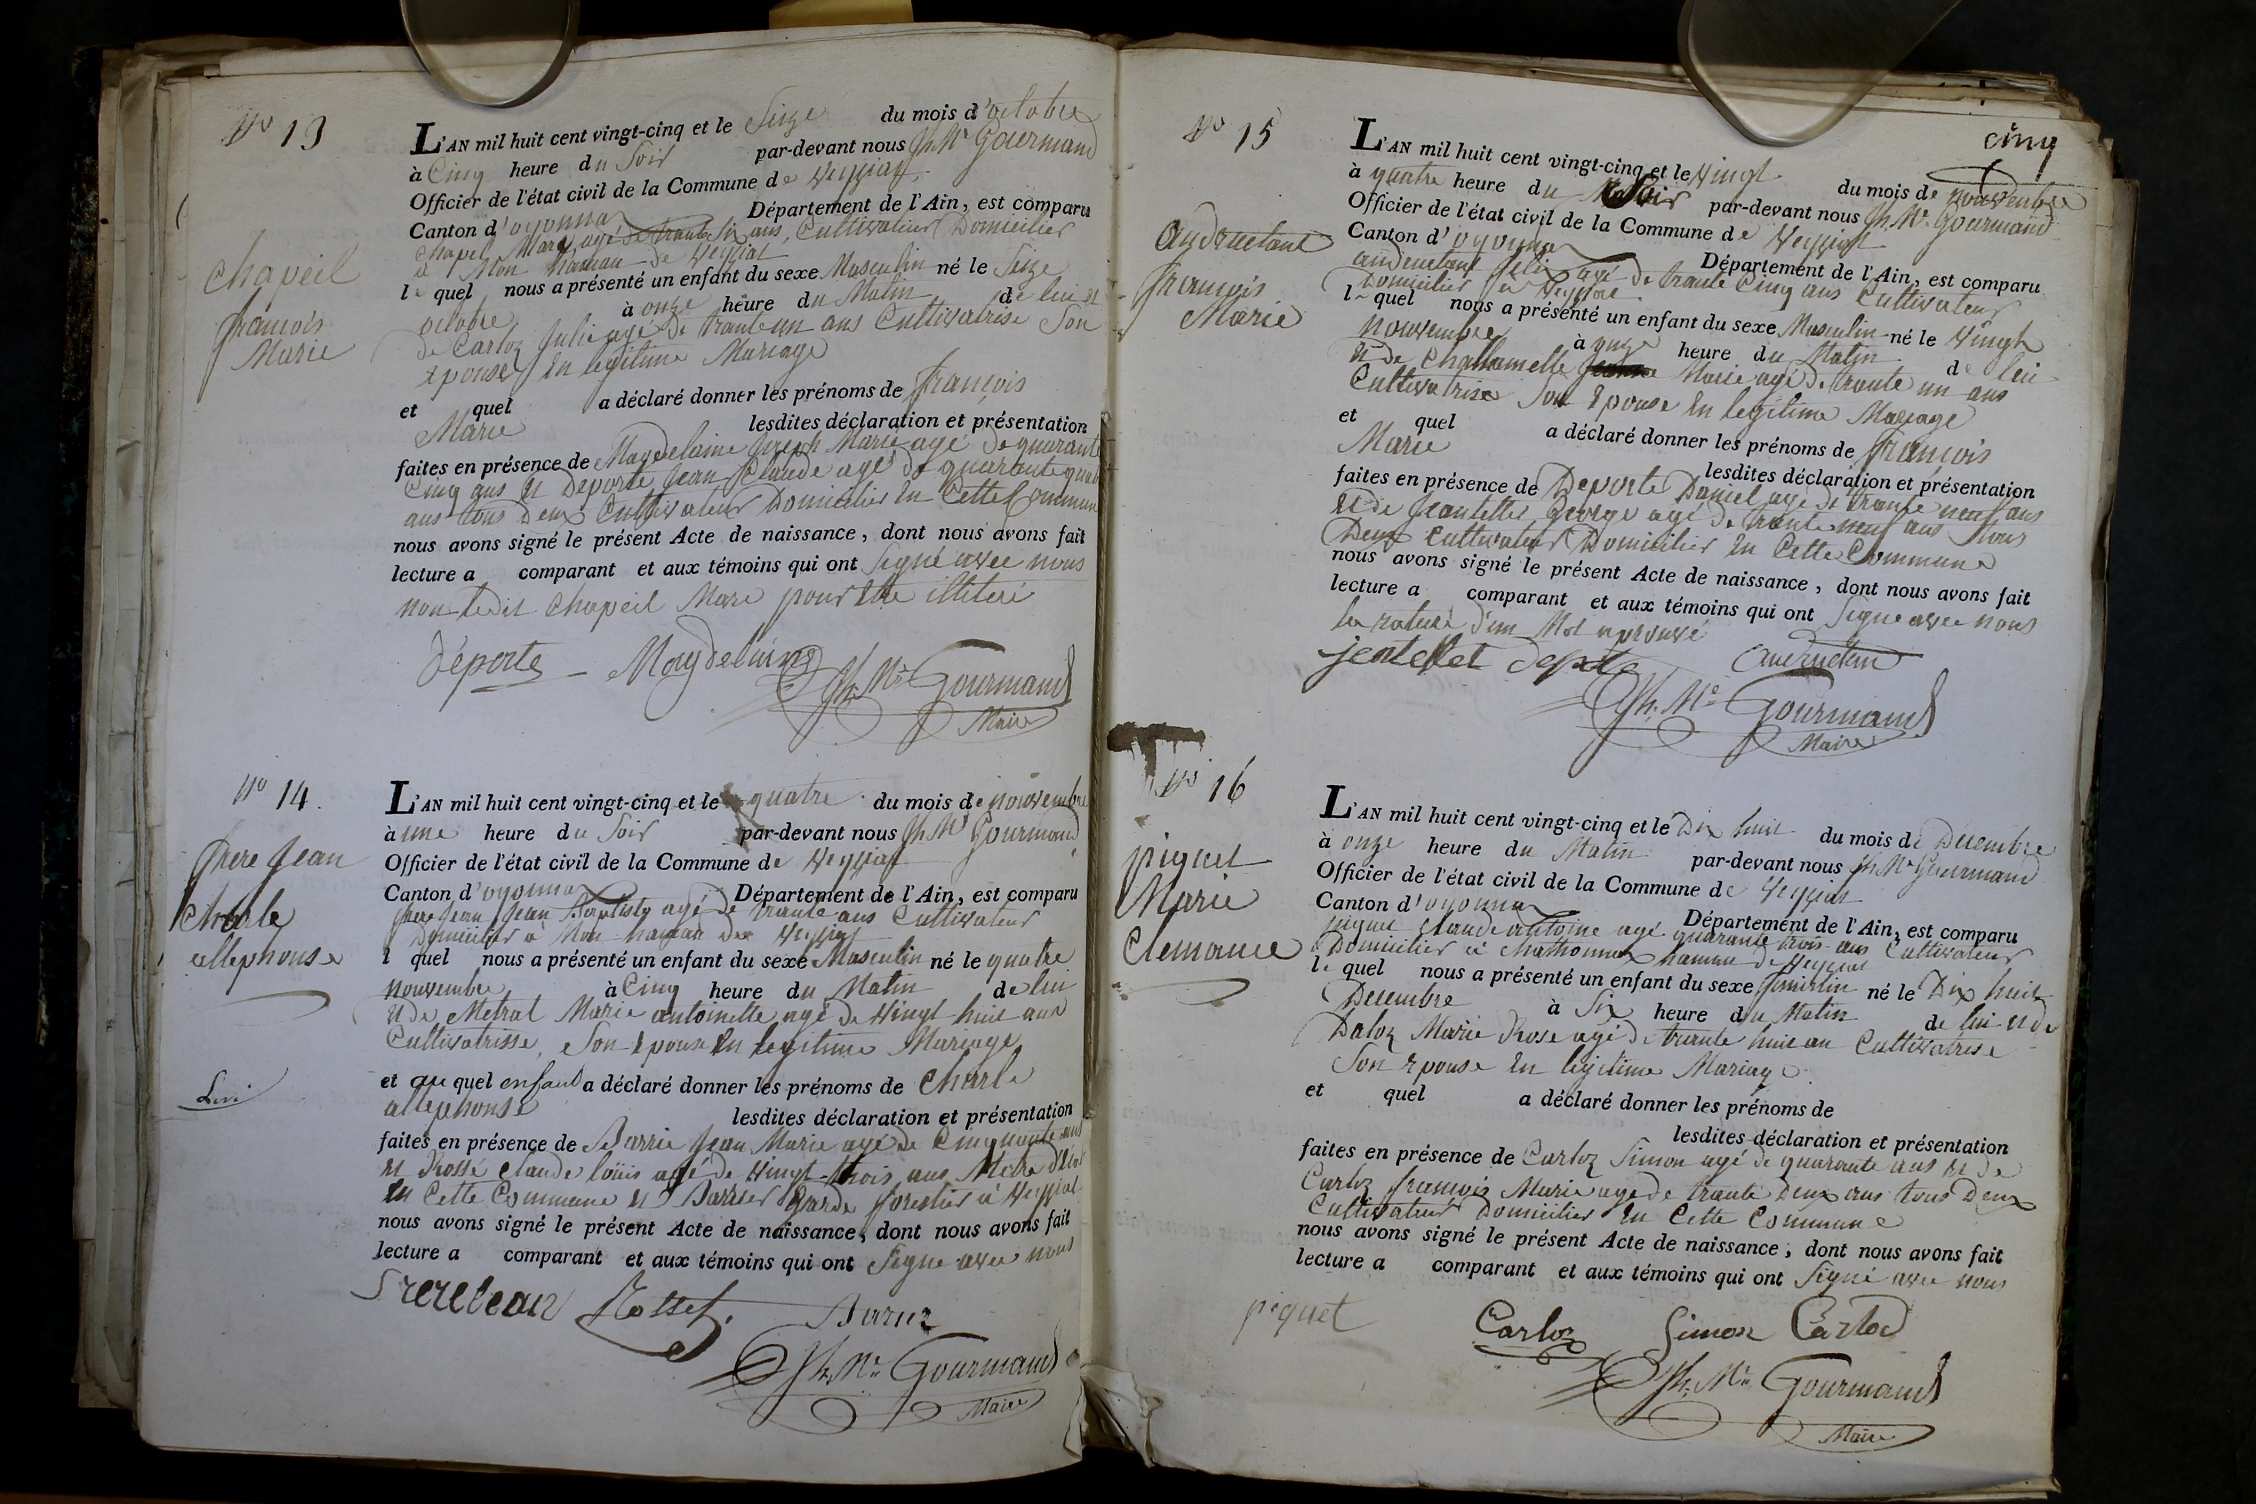 No 13
L'AN mil huit cent vingt-cinq et le Seize du mois d'octobre
à Cinq heure du Soir par-devant nous Jh. Mie Gourmand
Officier de l'état civil de la Commune de Veyziat
Canton d'oyonna Département de l'Ain, est comparu
Chapel Marc agé de trante six ans, Cultivateur Domicilier
à Mon hamau de Veyziat
le quel nous a présenté un enfant du sexe Masculin né le Seize
octobre à onze heure du Matin de lui et
de Carloz Julie agé de trante un ans Cultivatrise Son
epouse en legitime Mariage
et quel a déclaré donner les prénoms de françois
Marie lesdites déclaration et présentation
faites en présence de Maydelaine Joseph Marie agé de quarante
Cinq ans et Deporte Jean Claude agé de quarante quat
ans tous Deux Cultivateur Domicilier en Cette Commune
nous avons signé le présent Acte de naissance, dont nous avons fait
lecture a comparant et aux témoins qui ont Signé avec nous
non ledit Chapeil Marc pour etre illiteré
Chapeil
françois
Marie
Déporte Maydelaine
Jh. Mie Gourmand
Maire
No 14.
L'AN mil huit cent vingt-cinq et le quatre du mois de nouvembre
à une heure du Soir par-devant nous Jh. Mie Gourmand
Officier de l'état civil de la Commune de Veyziat
Canton d'oyonna Département de l'Ain, est comparu
frere Jean Jean Baptiste agé de trante ans Cultivateur
Domicilier à Mon hamau de Veyziat
l quel nous a présenté un enfant du sexe Masculin né le quatre
nouvembre à Cinq heure du Matin de lui
et de Metral Marie antoinette agé de Vingt huit ans
Cultivatrisse, Son epouse en legitime Mariage
et au quel enfant a déclaré donner les prénoms de Charle
allephonse lesdites déclaration et présentation
faites en présence de Barrie Jean Marie agé de Cinquante ans
et Rosse Claude louis agé de Vingt-trois ans
en Cette Commune et Barrier Garde forestier à Veyziat
nous avons signé le présent Acte de naissance, dont nous avons fait
lecture a comparant et aux témoins qui ont Signe avec nous
frere Jean
Charle
allephonse
frereJean Rosset Barier
Jh. Mie Gourmand
Maire
cinq
No 15
L'AN mil huit cent vingt-cinq et le Vingt du mois de nouvembre
à quatre heure du Soir par-devant nous Jh. Mie Gourmand
Officier de l'état civil de la Commune de Veyziat
Canton d'oyonna Département de l'Ain, est comparu
felix agé de trante Cinq ans Cultivateur
Domicilier à Veyziat
le quel nous a présenté un enfant du sexe Masculin né le Vingt
nouvembre à onze heure du Matin de lui
et de Challamelle Marie agé de trante un ans
Cultivatrise Son epouse en legitime Mariage
et quel a déclaré donner les prénoms de françois
Marie lesdites déclaration et présentation
faites en présence de Deporte Daniel agé de trante neuf ans
et de Jeantettet George agé de trante neuf ans tous
Deux Cultivateur Domicilier en Cette Commune
nous avons signé le présent Acte de naissance, dont nous avons fait
lecture a comparant et aux témoins qui ont Signe avec nous
la rature d'un Mot aprouvé
françois
Marie
Jh. Mie Gourmand
Maire
No 16
L'AN mil huit cent vingt-cinq et le Dix huit du mois de Decembre
à onze heure du Matin par-devant nous Jh. Mie Gourmand
Officier de l'état civil de la Commune de Veyziat
Canton d'oyonna Département de l'Ain, est comparu
piquet Claude antoine agé quarante trois ans Cultivateur
Domicilier à Chathonnax hamau de Veyziat
le quel nous a présenté un enfant du sexe feminin né le Dix huit
Decembre à Six heure du Matin de lui et de
Daloz Marie Rose agé de trante huit an Cultivatrise
Son epouse en legitime Mariage
et quel a déclaré donner les prénoms de
lesdites déclaration et présentation
faites en présence de Carloz Simon agé de quarante ans et de
Carloz françois Marie agé de trante Deux ans tous Deux
Cultivateur Domicilier en Cette Commune
nous avons signé le présent Acte de naissance, dont nous avons fait
lecture a comparant et aux témoins qui ont Signé avec nous
piquet
Marie
Clemance
piquet Carloz Simon Carloz
Jh. Mie Gourmand
Maire